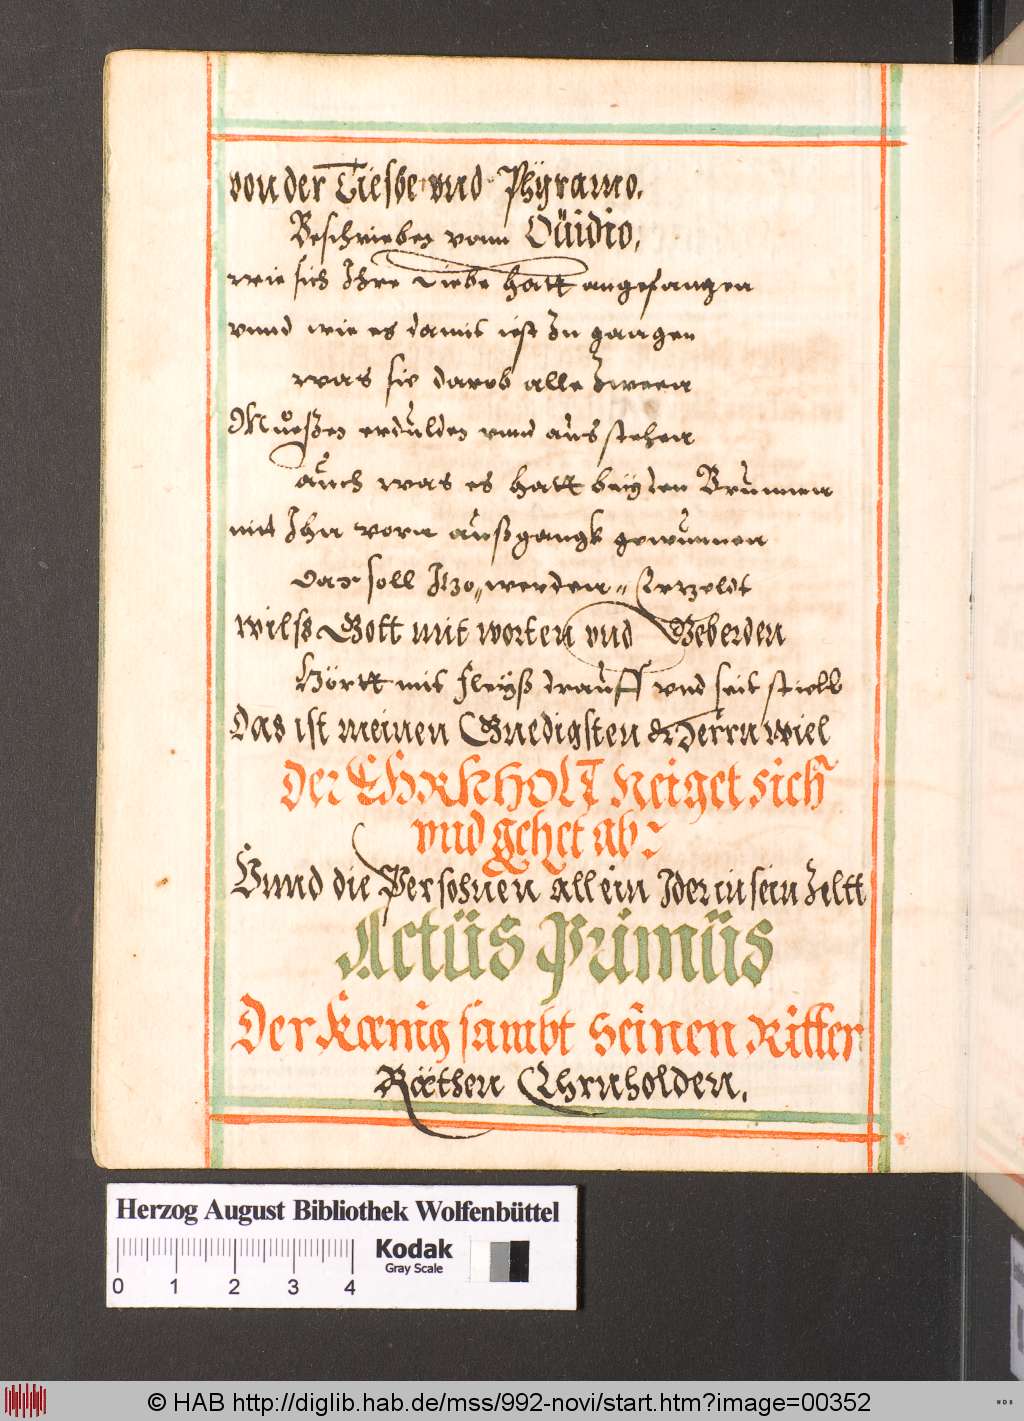 von der Tiesbe vnd Phÿramo.
Beschrieben vonn Oüidio,
wie sich Ihre Liebe hatt angefangen
vnnd wie es damit ist zu gangen
was sie darob alle zween
Mueßen erdulden vnnd ausstehen
auch was es hatt beÿ den Brunnen
mit Ihn vorn außgangk gewunnen
Das soll Itzo werden Ertzeldt
wils Gott mit worten vnd Geberden
Hörtt mit fleÿß drauff vnd seit stiell
Das ist meinen Gnedigsten Herrn wiel
Der EHRNHOLT Neiget sich
vnd gehet ab:
Vnnd die Persohnen allein Ider in sein Zeltt
Actüs Primüs
Der Kœnig sambt seinen Ritter
Räthen Ehrnholden.
Herzog August Bibliothek Wolfenbüttel
Kodak
Gray Scale
0 1 2 3 4
© HAB http://diglib.hab.de/mss/992-novi/start.htm?image=00352